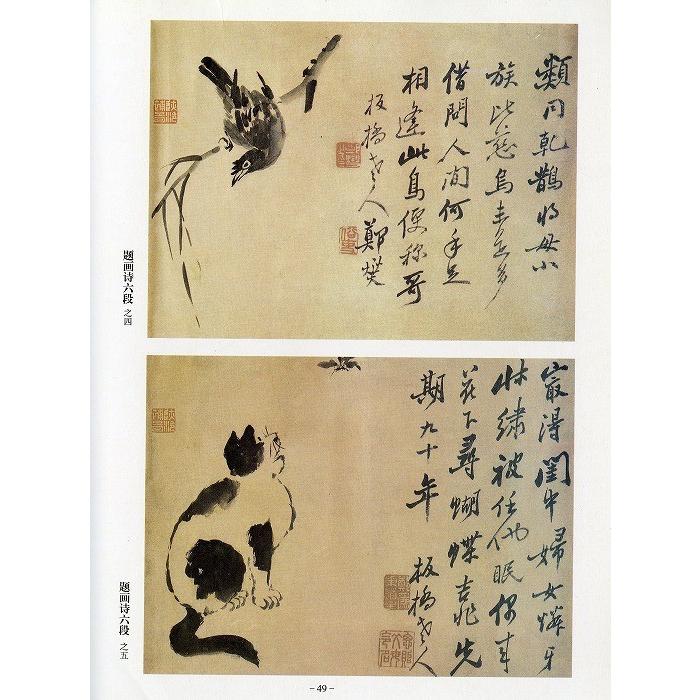 類同乾鵲将毋小
族比慈烏多
借問人间何手足
相逢此鳥便称哥
板橋老人鄭燮
题画诗六段 之四
最得閨中婦女憐牙
牀繡被任他眠偶来
花下尋蝴蝶吉兆先
期九十年
板橋老人
题画诗六段 之五
- 49 -